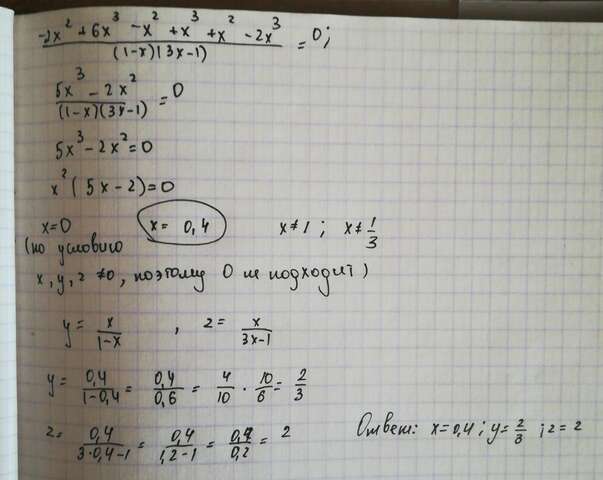 (-2x² + 6x³ - x² + x³ + x² - 2x³) / ((1-x)(3x-1)) = 0;
(5x³ - 2x²) / ((1-x)(3x-1)) = 0
5x³ - 2x² = 0
x²(5x - 2) = 0
x = 0 x = 0,4 x ≠ 1; x ≠ 1/3
(по условию
x, y, z ≠ 0, поэтому 0 не подходит)
y = x/(1-x) , z = x/(3x-1)
y = 0,4/(1-0,4) = 0,4/0,6 = 4/10 · 10/6 = 2/3
z = 0,4/(3·0,4-1) = 0,4/(1,2-1) = 0,4/0,2 = 2
Ответ: x = 0,4; y = 2/3; z = 2